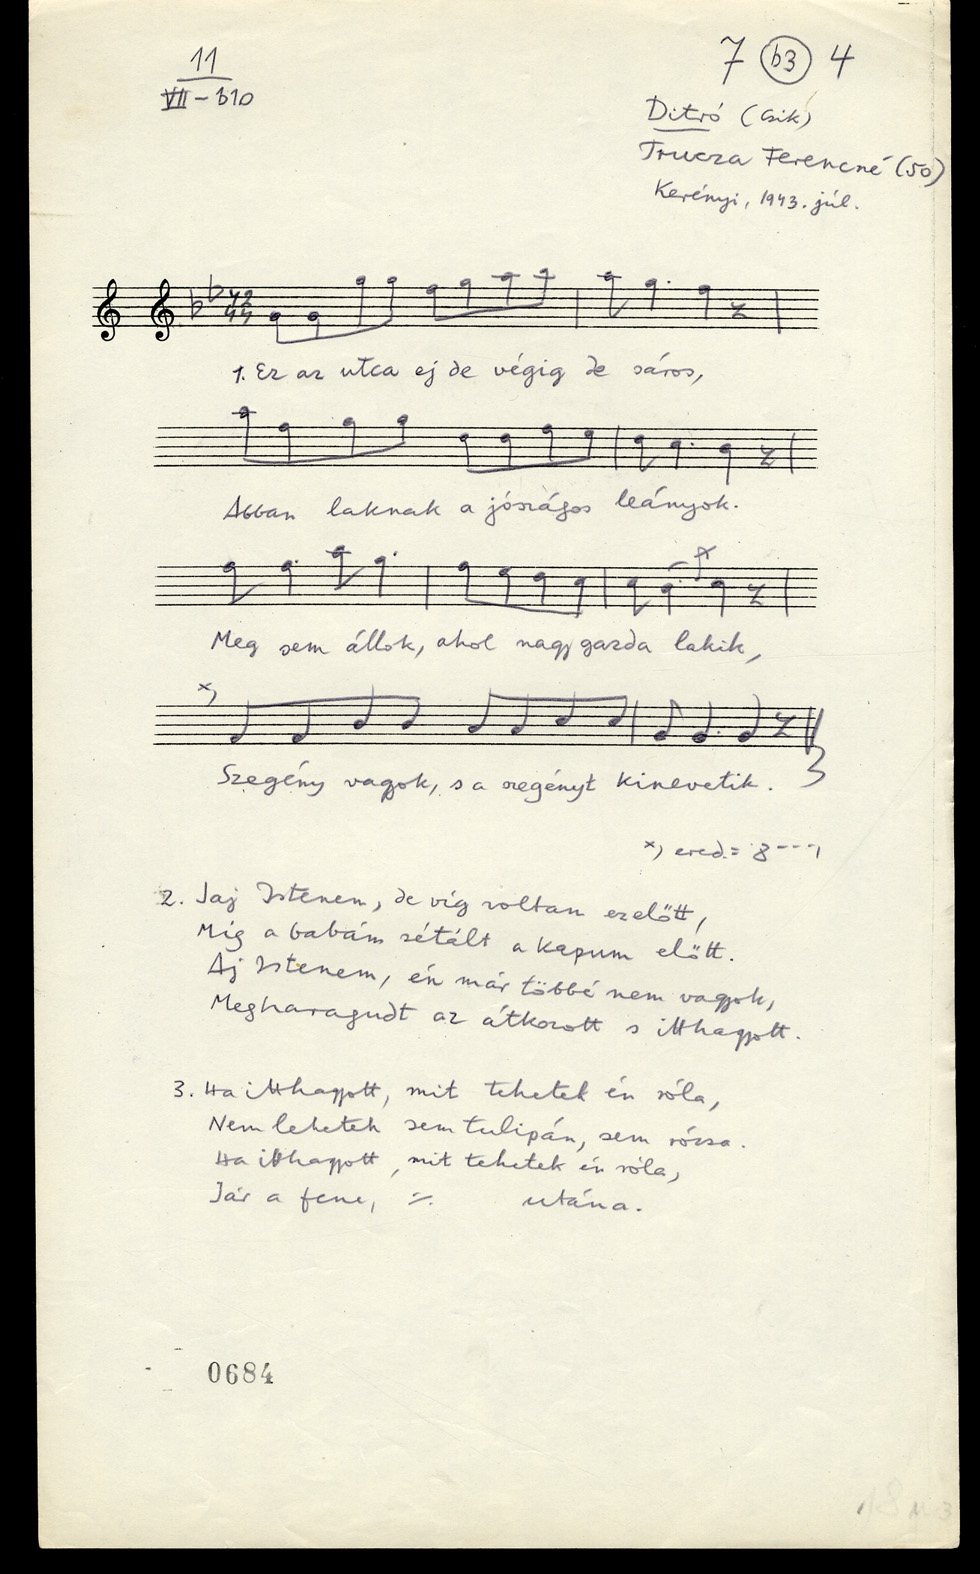 11
VII - b10
7 b3 4
Ditró (Csik)
Trucza Ferencné (50)
Kerényi, 1943. júl.
1. Ez az utca ej de végig de sáros,
Abban laknak a jószágos leányok.
Meg sem állok, ahol nagygazda lakik,
x)
Szegény vagok, s a szegényt kinevetik.
x) ered. = 8---1
2. Jaj Istenem, de víg voltam ezelőtt,
Míg a babám sétált a kapum előtt.
Aj Istenem, én már többé nem vagyok,
Megharagudt az átkozott s itthagyott.
3. Ha itthagyott, mit tehetek én róla,
Nem lehetek sem tulipán, sem rózsa.
Ha itthagyott, mit tehetek én róla,
Jár a fene, ·/. utána.
0684